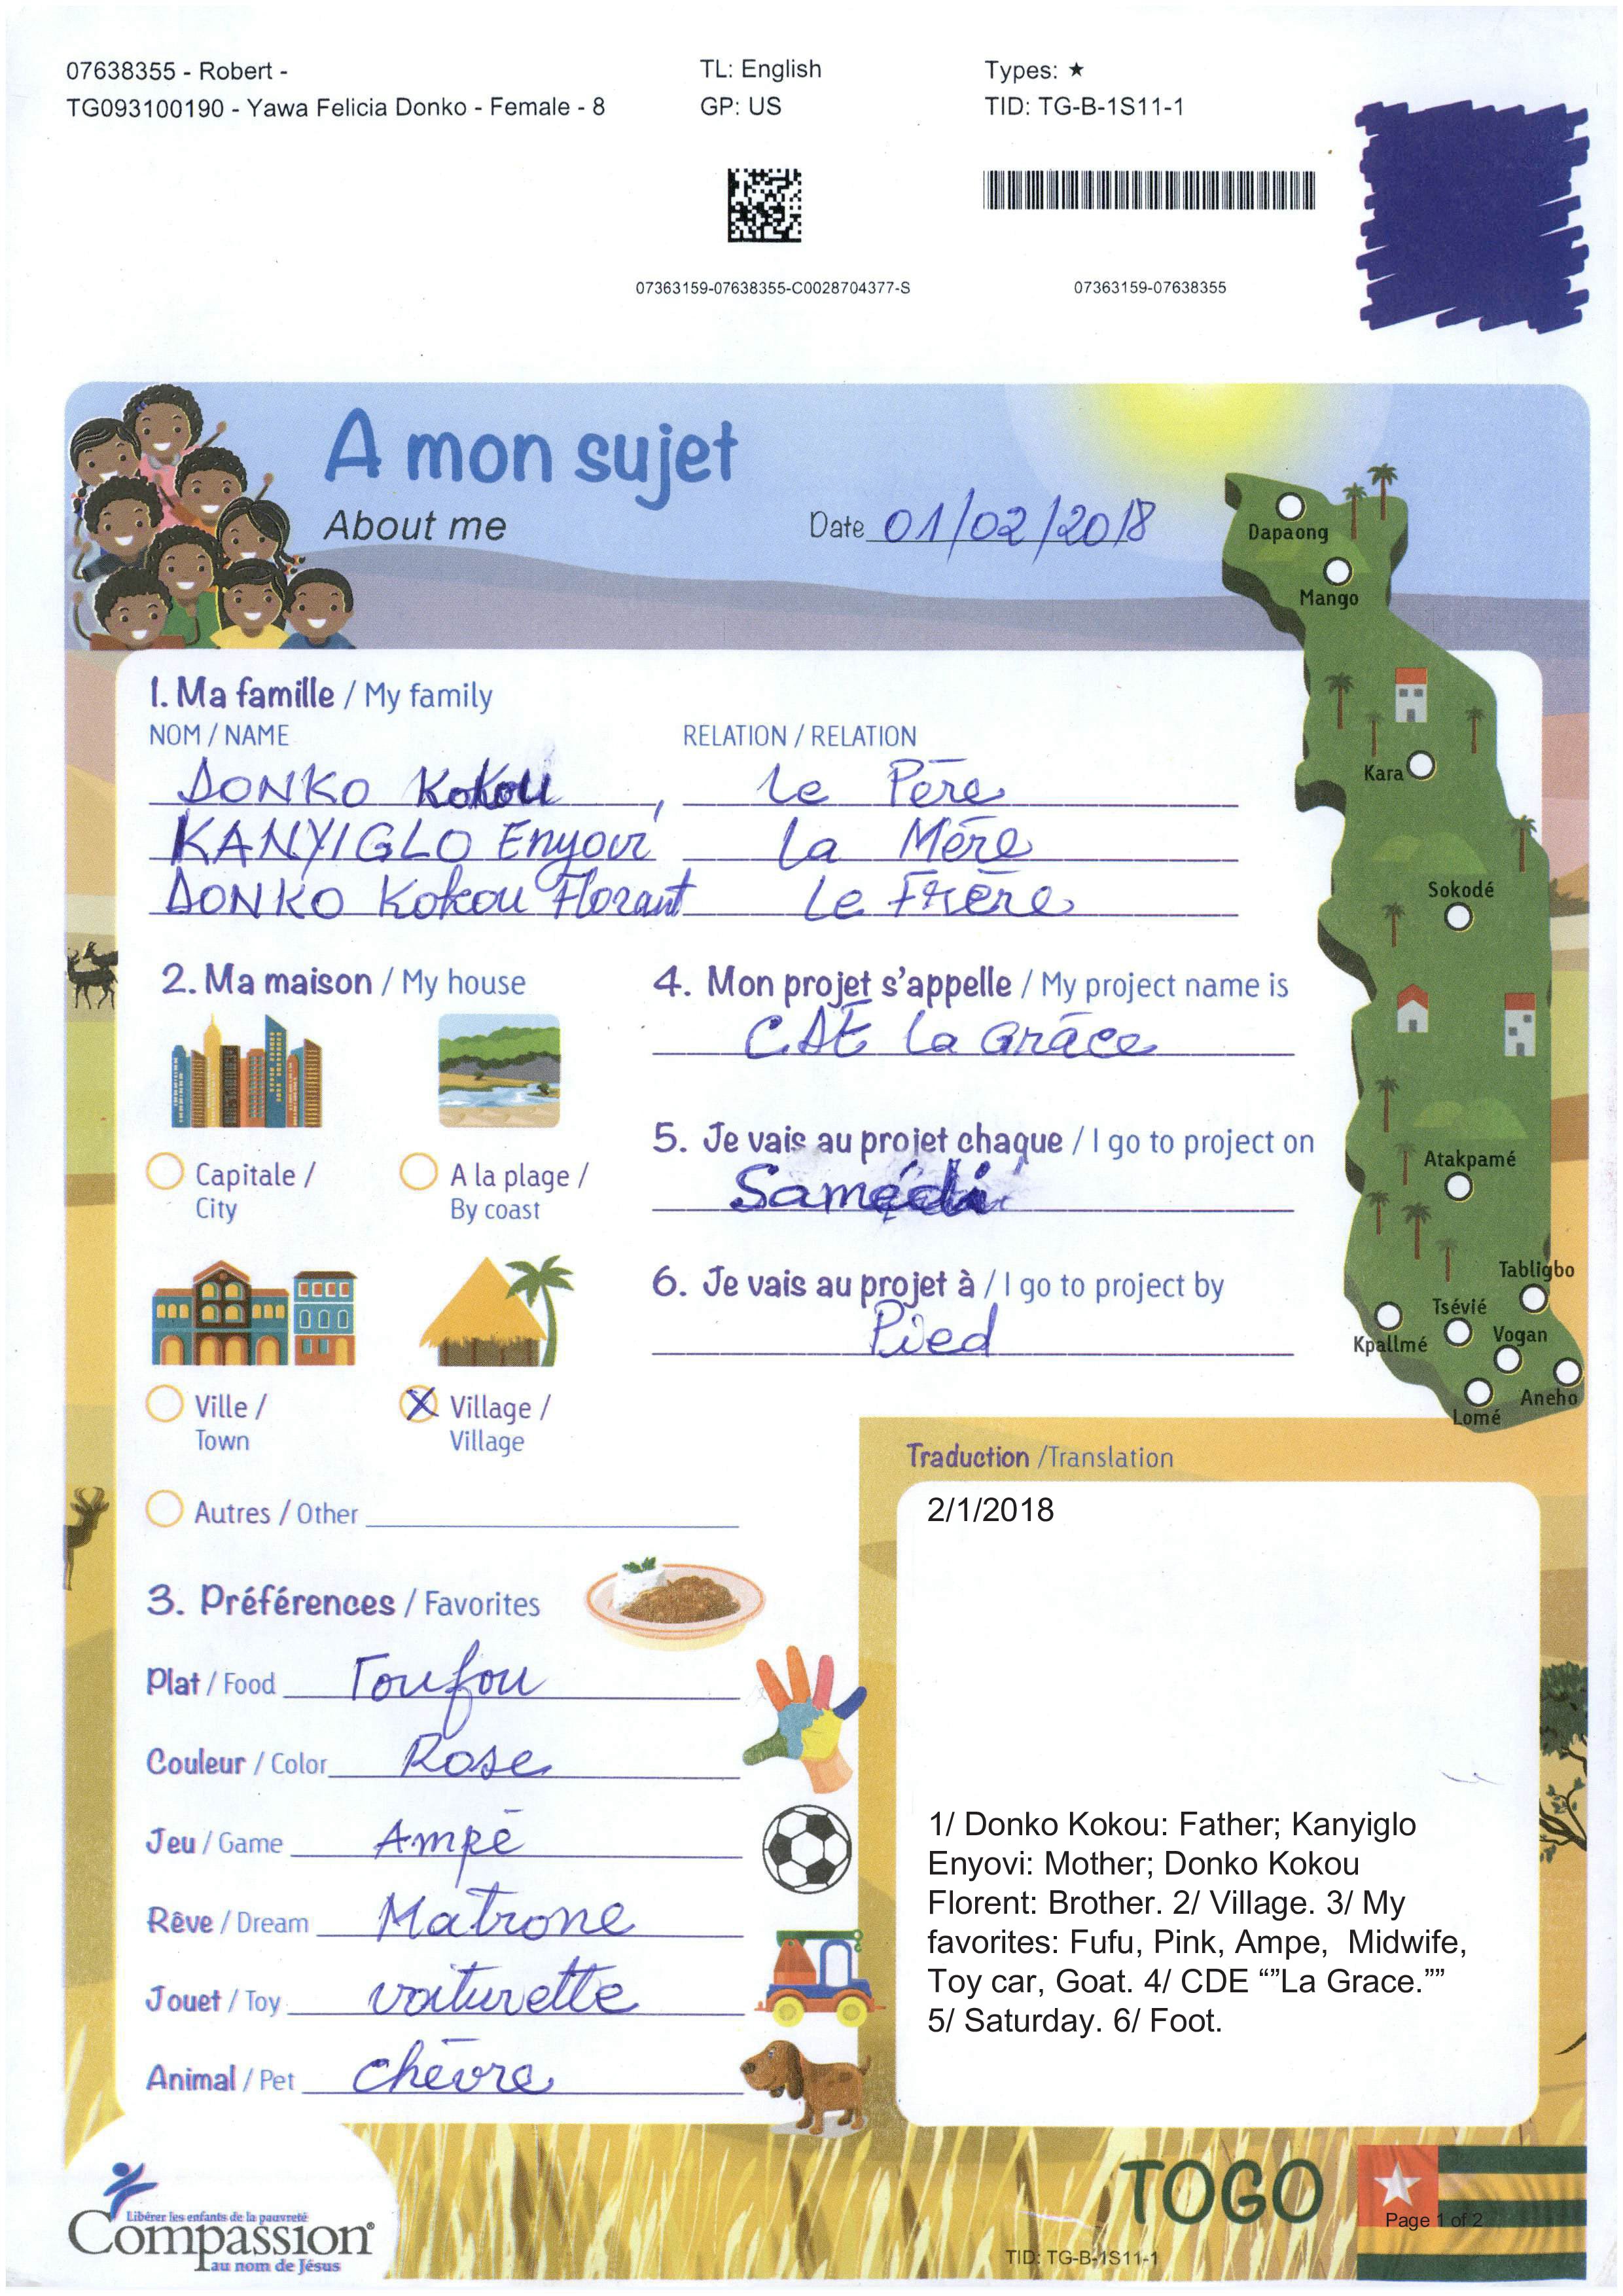 07638355 - Robert -
TG093100190 - Yawa Felicia Donko - Female - 8
TL: English
GP: US
Types: ★
TID: TG-B-1S11-1
07363159-07638355-C0028704377-S
07363159-07638355
A mon sujet
About me
Date 01/02/2018
Dapaong
Mango
Kara
Sokodé
Atakpamé
Tabligbo
Tsévié
Kpallmé
Vogan
Aneho
Lomé
1. Ma famille / My family
NOM / NAME RELATION / RELATION
DONKO Kokou, Le Père
KANYIGLO Enyovi La Mère
DONKO Kokou Florant Le Frère
2. Ma maison / My house
Capitale /
City
A la plage /
By coast
Ville /
Town
X Village /
Village
Autres / Other
3. Préférences / Favorites
Plat / Food Foufou
Couleur / Color Rose
Jeu / Game Ampé
Rêve / Dream Matrone
Jouet / Toy voiturette
Animal / Pet chèvre
4. Mon projet s'appelle / My project name is
CDE La Grâce
5. Je vais au projet chaque / I go to project on
Samedi
6. Je vais au projet à / I go to project by
Pied
Traduction /Translation
2/1/2018
1/ Donko Kokou: Father; Kanyiglo
Enyovi: Mother; Donko Kokou
Florent: Brother. 2/ Village. 3/ My
favorites: Fufu, Pink, Ampe, Midwife,
Toy car, Goat. 4/ CDE “”La Grace.””
5/ Saturday. 6/ Foot.
Libérer les enfants de la pauvreté
Compassion®
au nom de Jésus
TOGO
Page 1 of 2
TID: TG-B-1S11-1